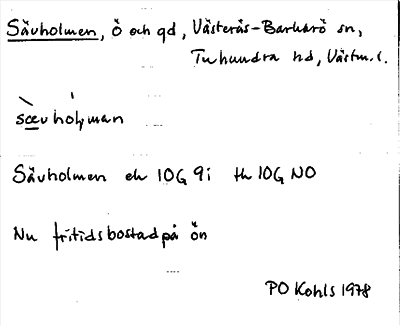 Sävholmen, ö och gd, Västerås-Barkarö sn,
Tuhundra hd, Västm. l.
sævhoḷman
Sävholmen ek 10G 9i th 10G NO
Nu fritidsbostad på ön
PO Kohls 1978